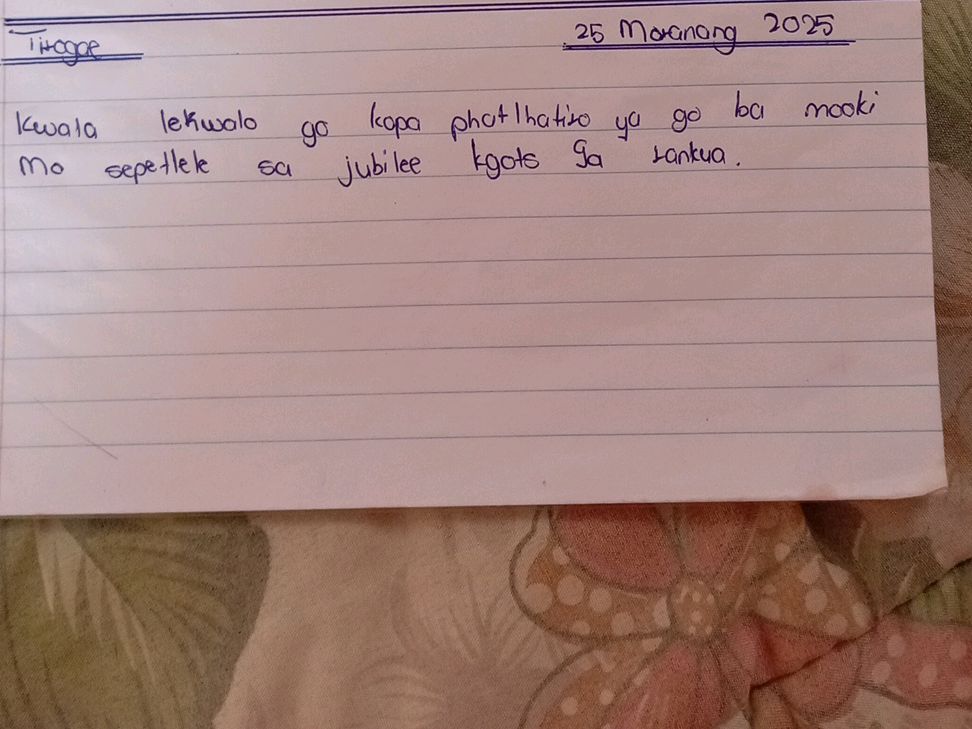 Tirogae
25 Moranang 2025
Kwala lekwalo go kopa phatlhatiro ya go ba mooki
Mo sepetlele sa jubilee kgots Ga rankua.